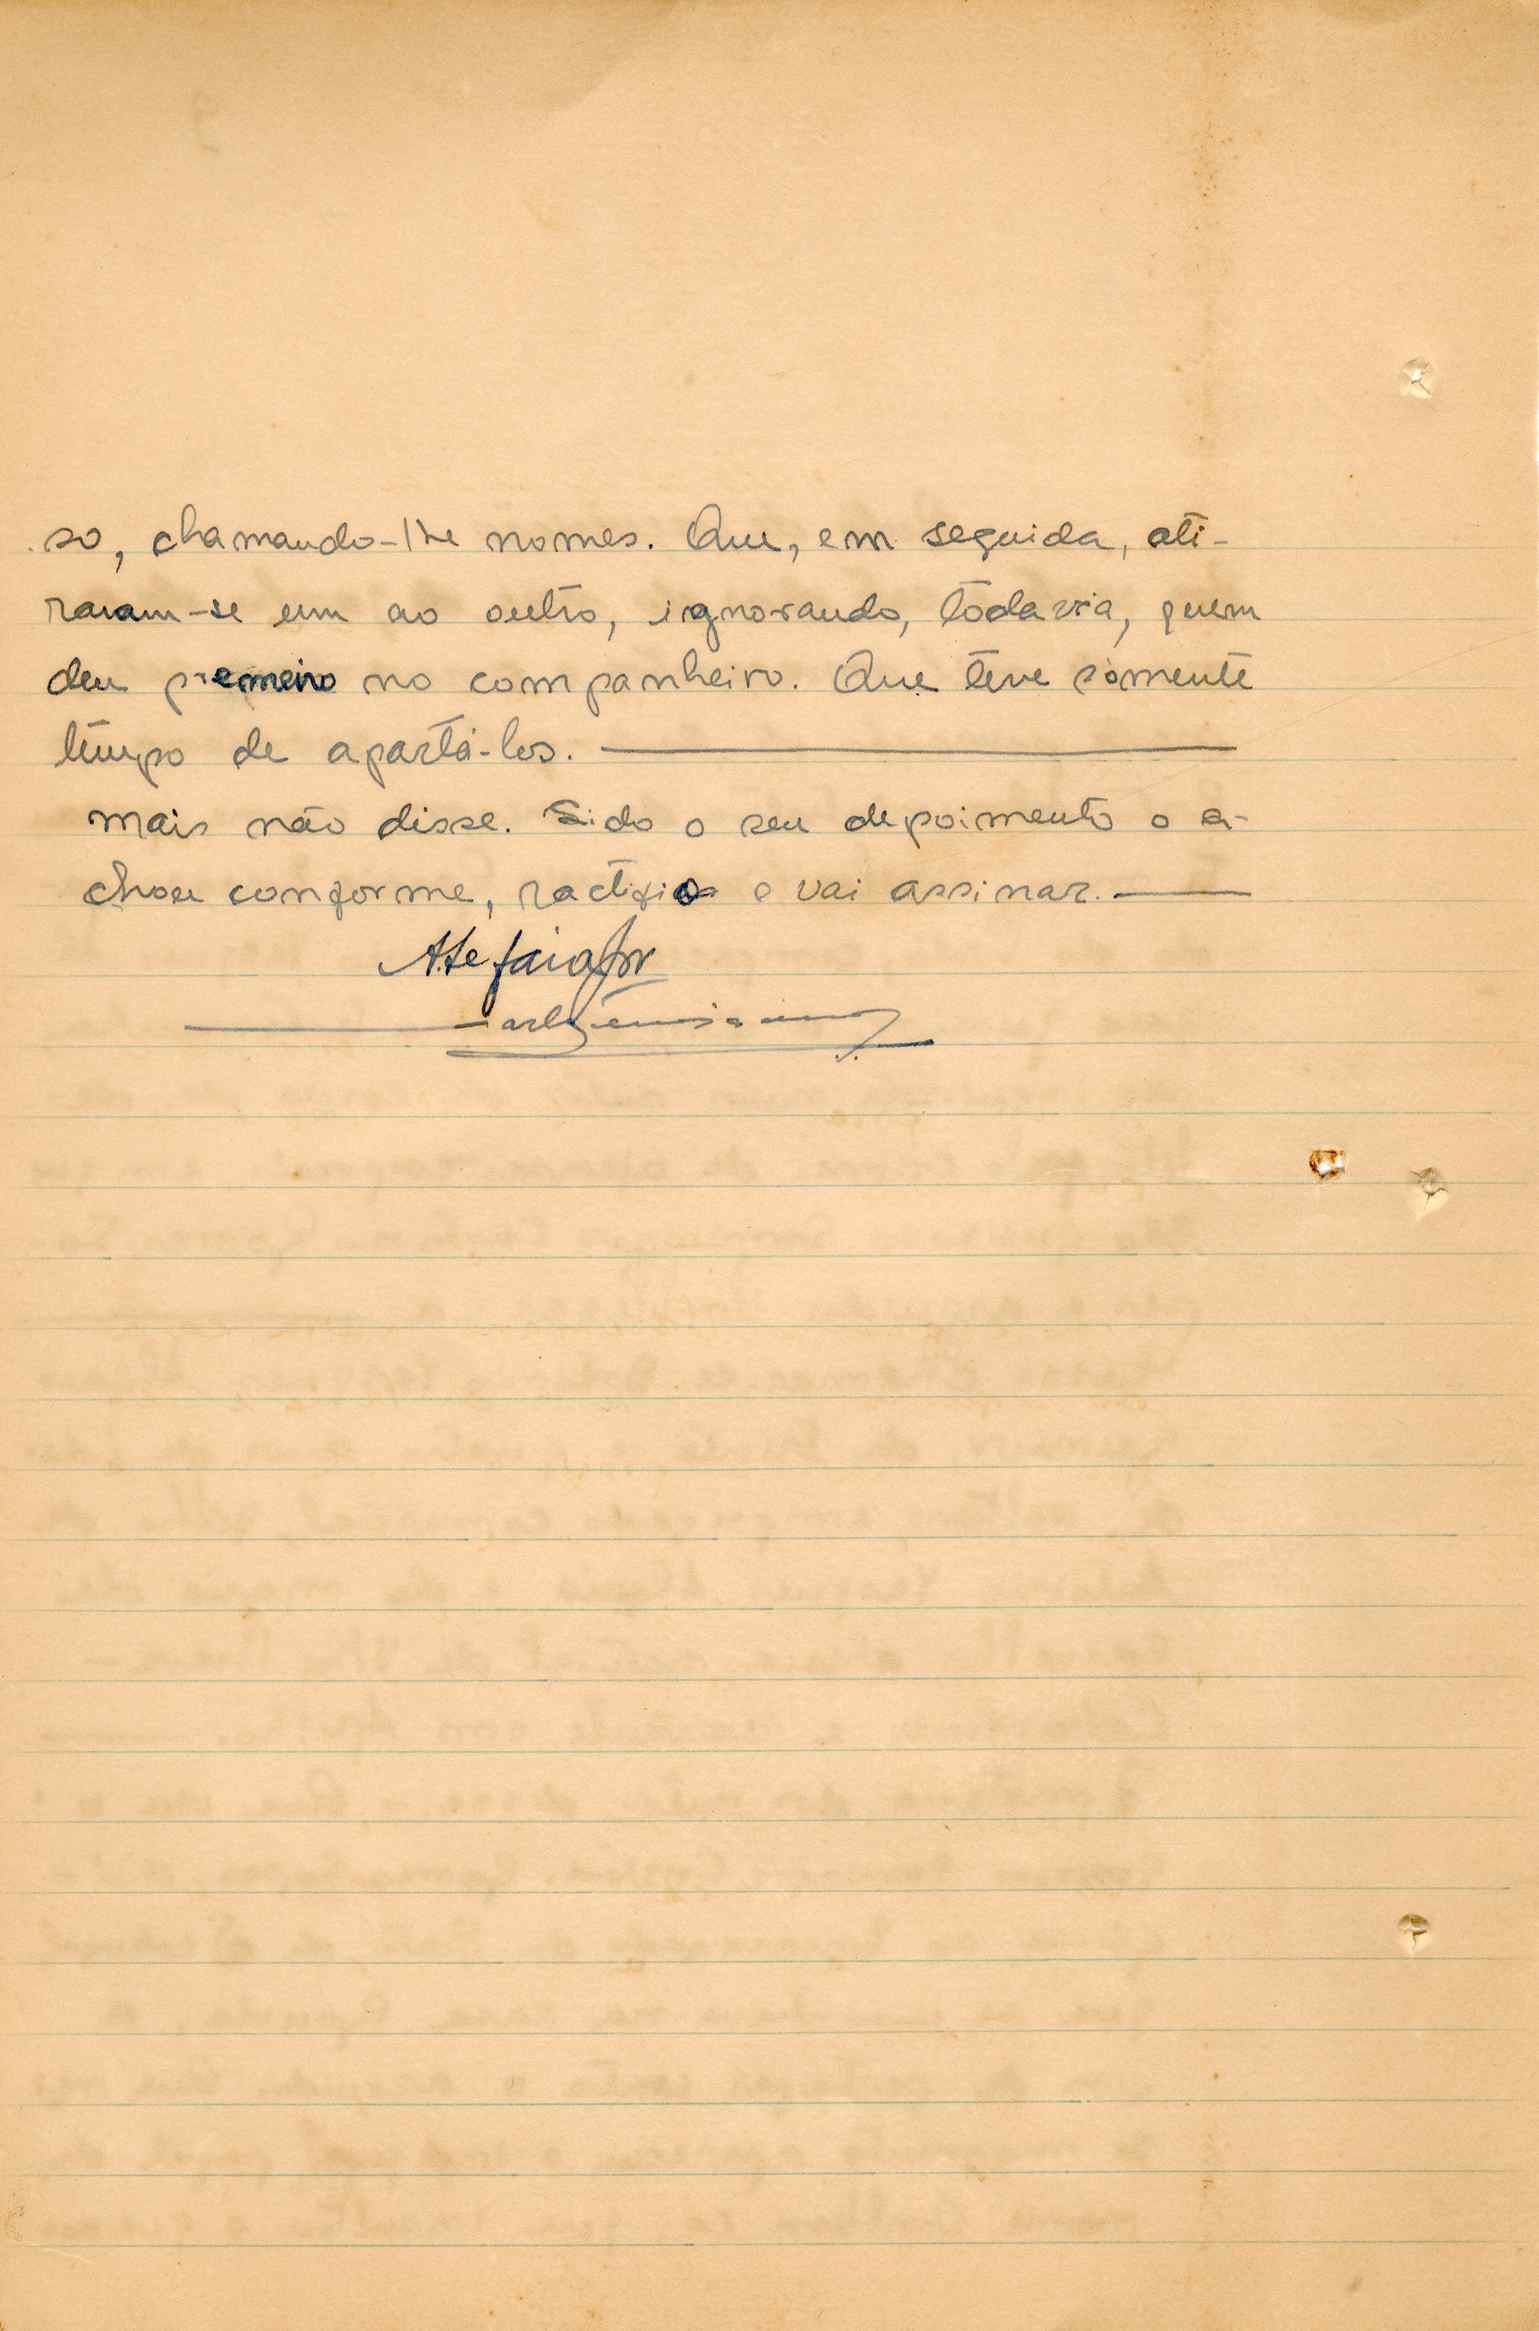 so, chamando-lhe nomes. Que, em seguida, ati-
raram-se um ao outro, ignorando, tòdavia, quem
deu premeiro no companheiro. Que teve sòmente
tempo de apartá-los.
mais não disse. Lido o seu depoimento o a-
chou conforme, ractifica e vai assinar.